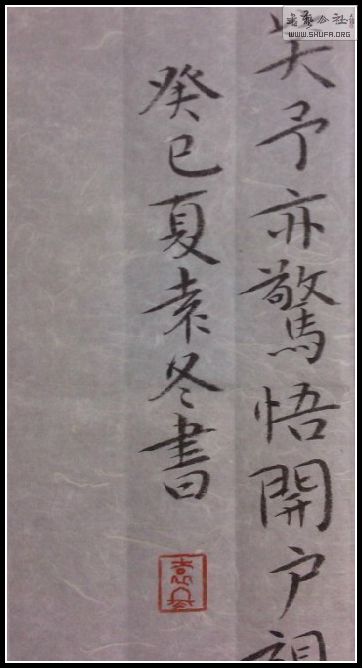 書藝公社
WWW.SHUFA.ORG
予亦驚悟開户視
癸巳夏袁冬書
袁冬